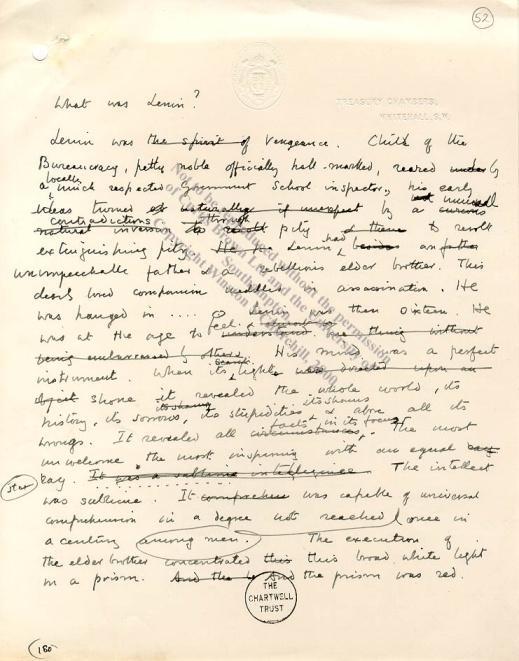 52
TREASURY CHAMBERS,
WHITEHALL, S.W.
What was Lenin?
Lenin was the spirit of Vengeance. Child of the
Bureaucracy, petty noble officially hall-marked, reared by
locally
a much respected Government School inspector, his early
ideas turned by
contradictions through pity to revolt
extinguishing pity. Lenin had an father
unimpeachable father & a rebellious elder brother. This
dearly loved companion meddled in assassination. He
was hanged in ..... Lenin was then sixteen. He
was at the age to feel. understand
being embarrassed by others. His mind was a perfect
instrument. When its light was directed upon an
object shone it revealed the whole world, its
history, its sorrows, its stupidities, its shams & above all its
wrongs. It revealed all facts in its focus The most
unwelcome the most inspiring with an equal
ray. It was a sublime intelligence The intellect
stet
was sublime. It was capable of universal
comprehension in a degree not reached once in
a century among men. The execution of
the elder brother concentrated this this broad white light
in a prism. And the And the prism was red.
THE
CHARTWELL
TRUST
180